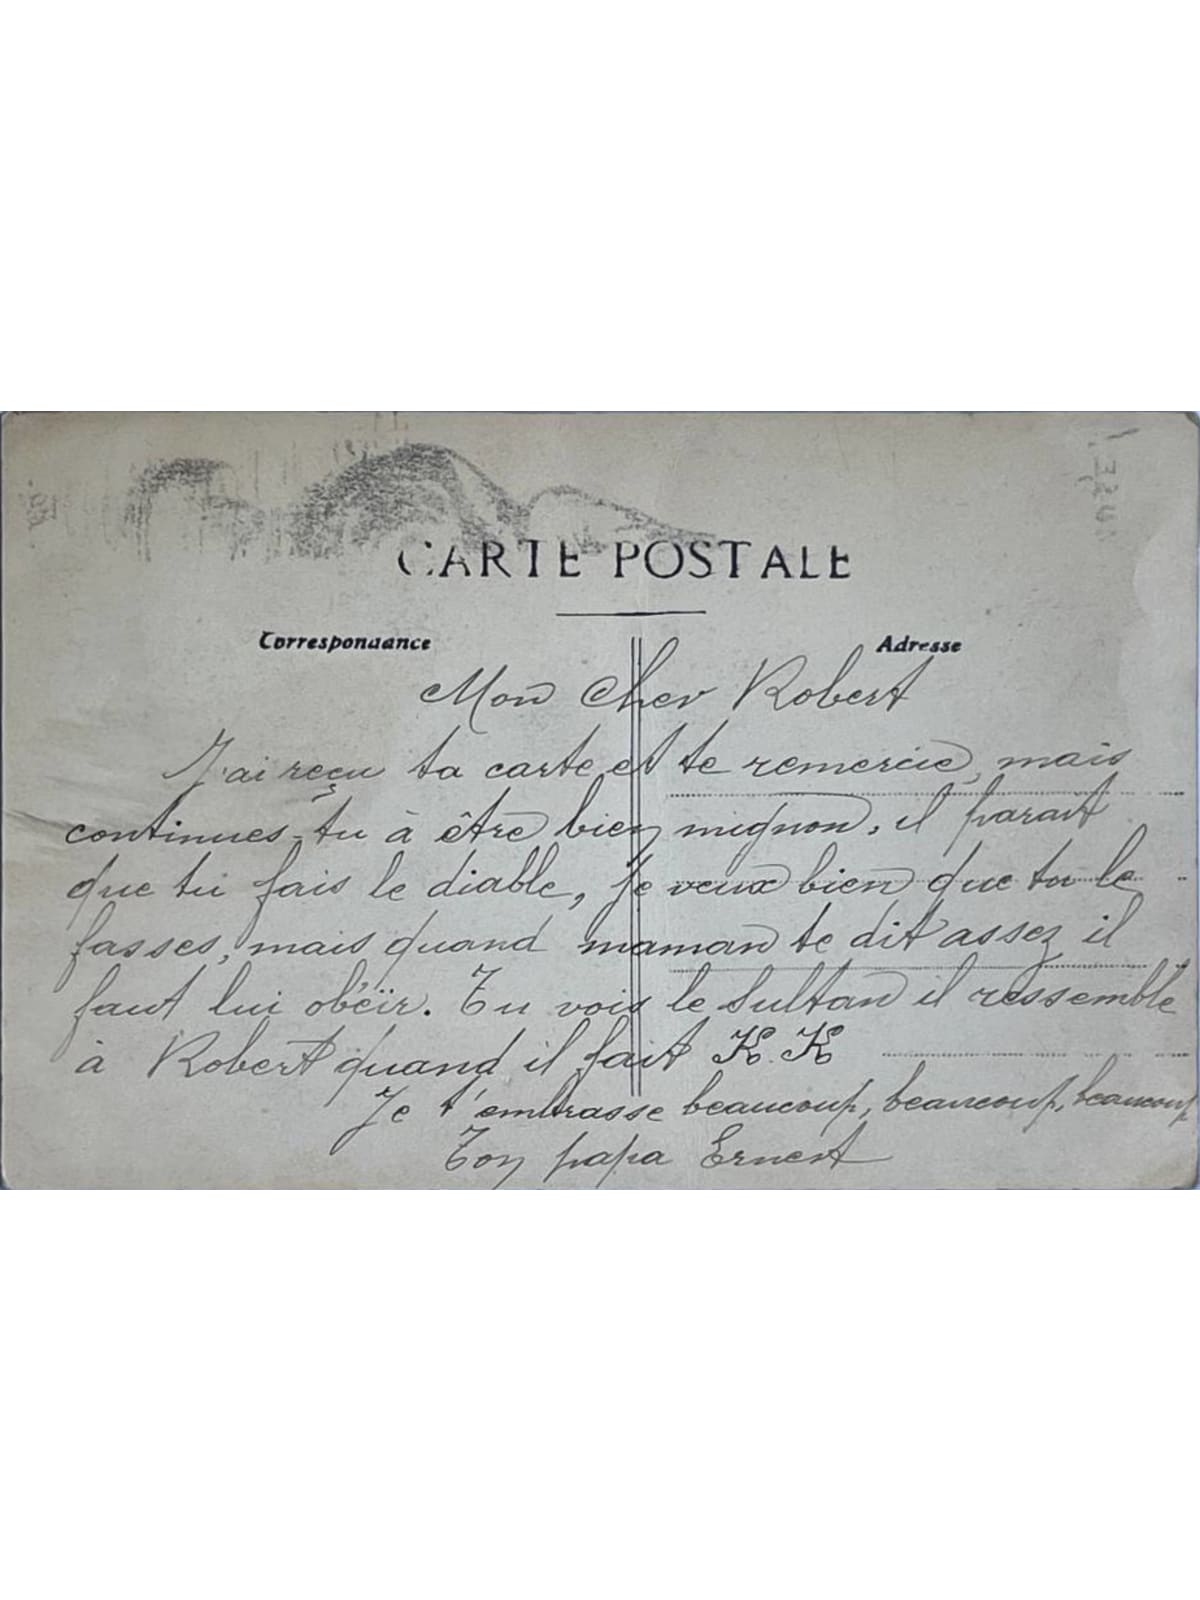 CARTE POSTALE
Correspondance Adresse
Mon cher Robert
J'ai reçu ta carte et te remercie, mais
continues-tu à être bien mignon, il parait
que tu fais le diable, je veux bien que tu le
fasses, mais quand maman te dit assez il
faut lui obéïr. Tu vois le Sultan il ressemble
à Robert quand il fait K.K
Je t'embrasse beaucoup, beaucoup, beaucoup
Ton papa Ernest